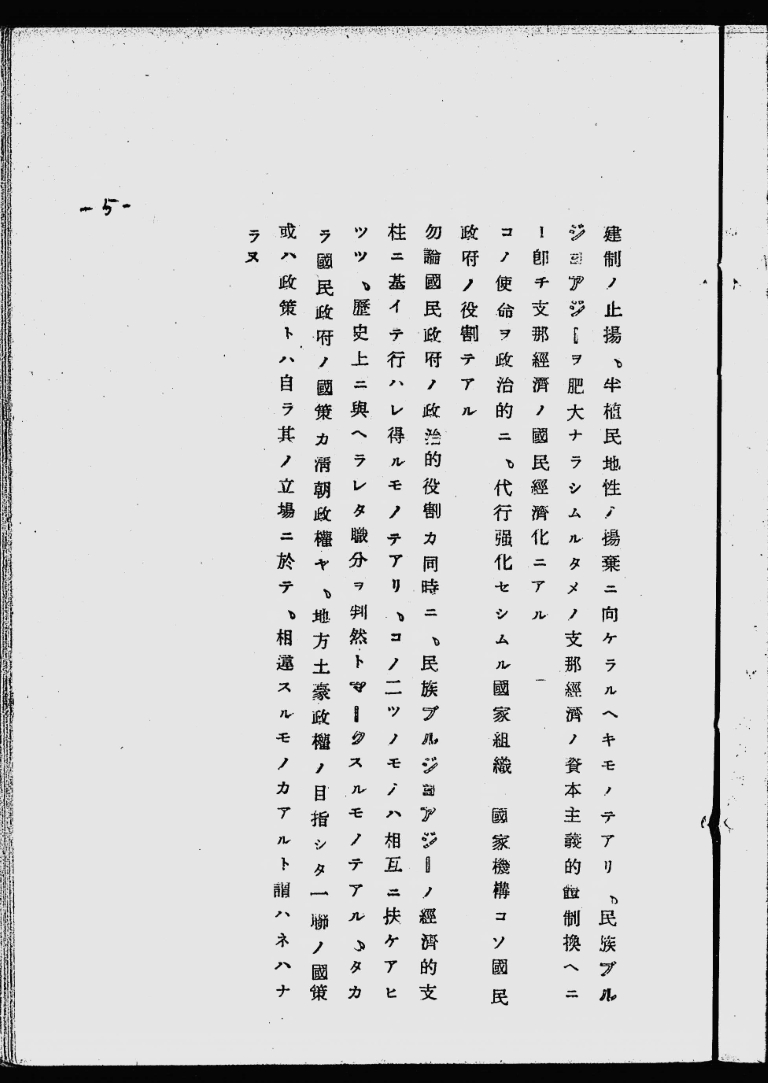 建制ノ止揚、半植民地性ノ揚棄ニ向ケラルヘキモノテアリ、民族ブル
ジヨアジーヲ肥大ナラシムルタメノ支那經濟ノ資本主義的體制換ヘニ
ー卽チ支那經濟ノ國民經濟化ニアル
コノ使命ヲ政治的ニ、代行强化セシムル國家組織 國家機構コソ國民
政府ノ役割テアル
勿論國民政府ノ政治的役割カ同時ニ、民族ブルジヨアジーノ經濟的支
柱ニ基イテ行ハレ得ルモノテアリ、コノ二ツノモノハ相互ニ扶ケアヒ
ツツ、歷史上ニ與ヘラレタ職分ヲ判然トマークスルモノテアル、タカ
ラ國民政府ノ國策カ淸朝政權ヤ、地方土豪政權ノ目指シタ一聯ノ國策
或ハ政策トハ自ラ其ノ立場ニ於テ、相違スルモノカアルト謂ハネハナ
ラヌ
-5-